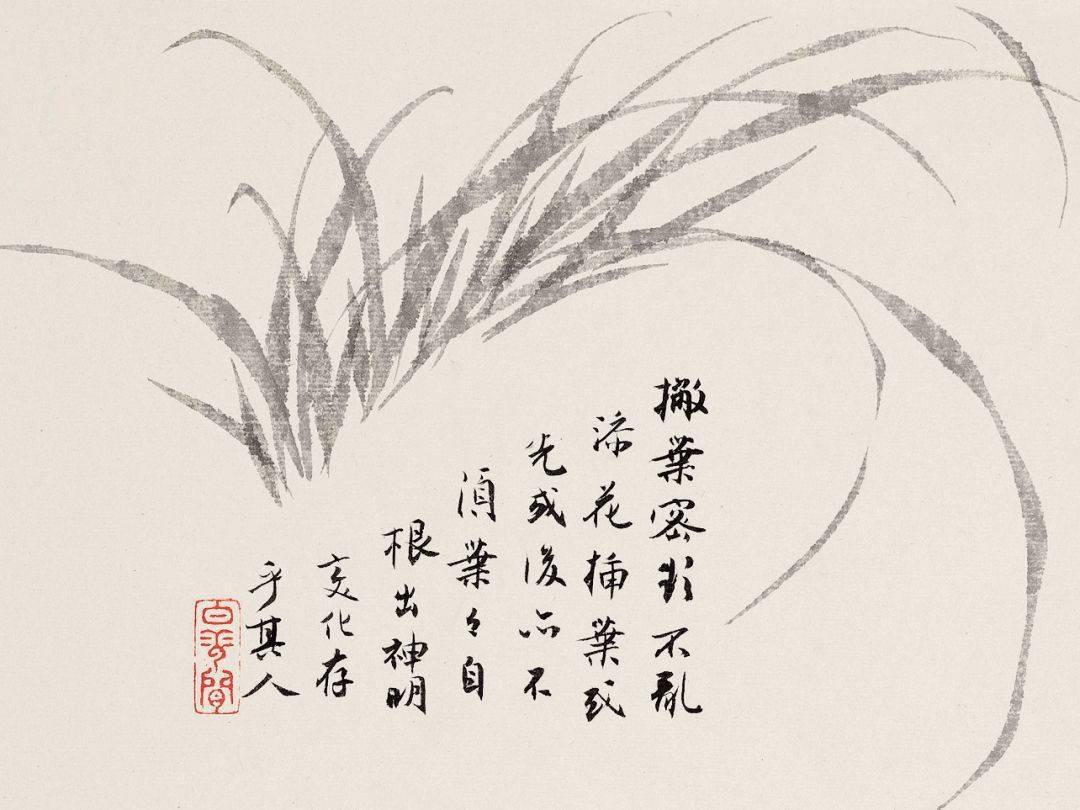 撇葉密不亂
添花插葉或
先或後亦不
須葉々自
根出神明
変化存
乎其人